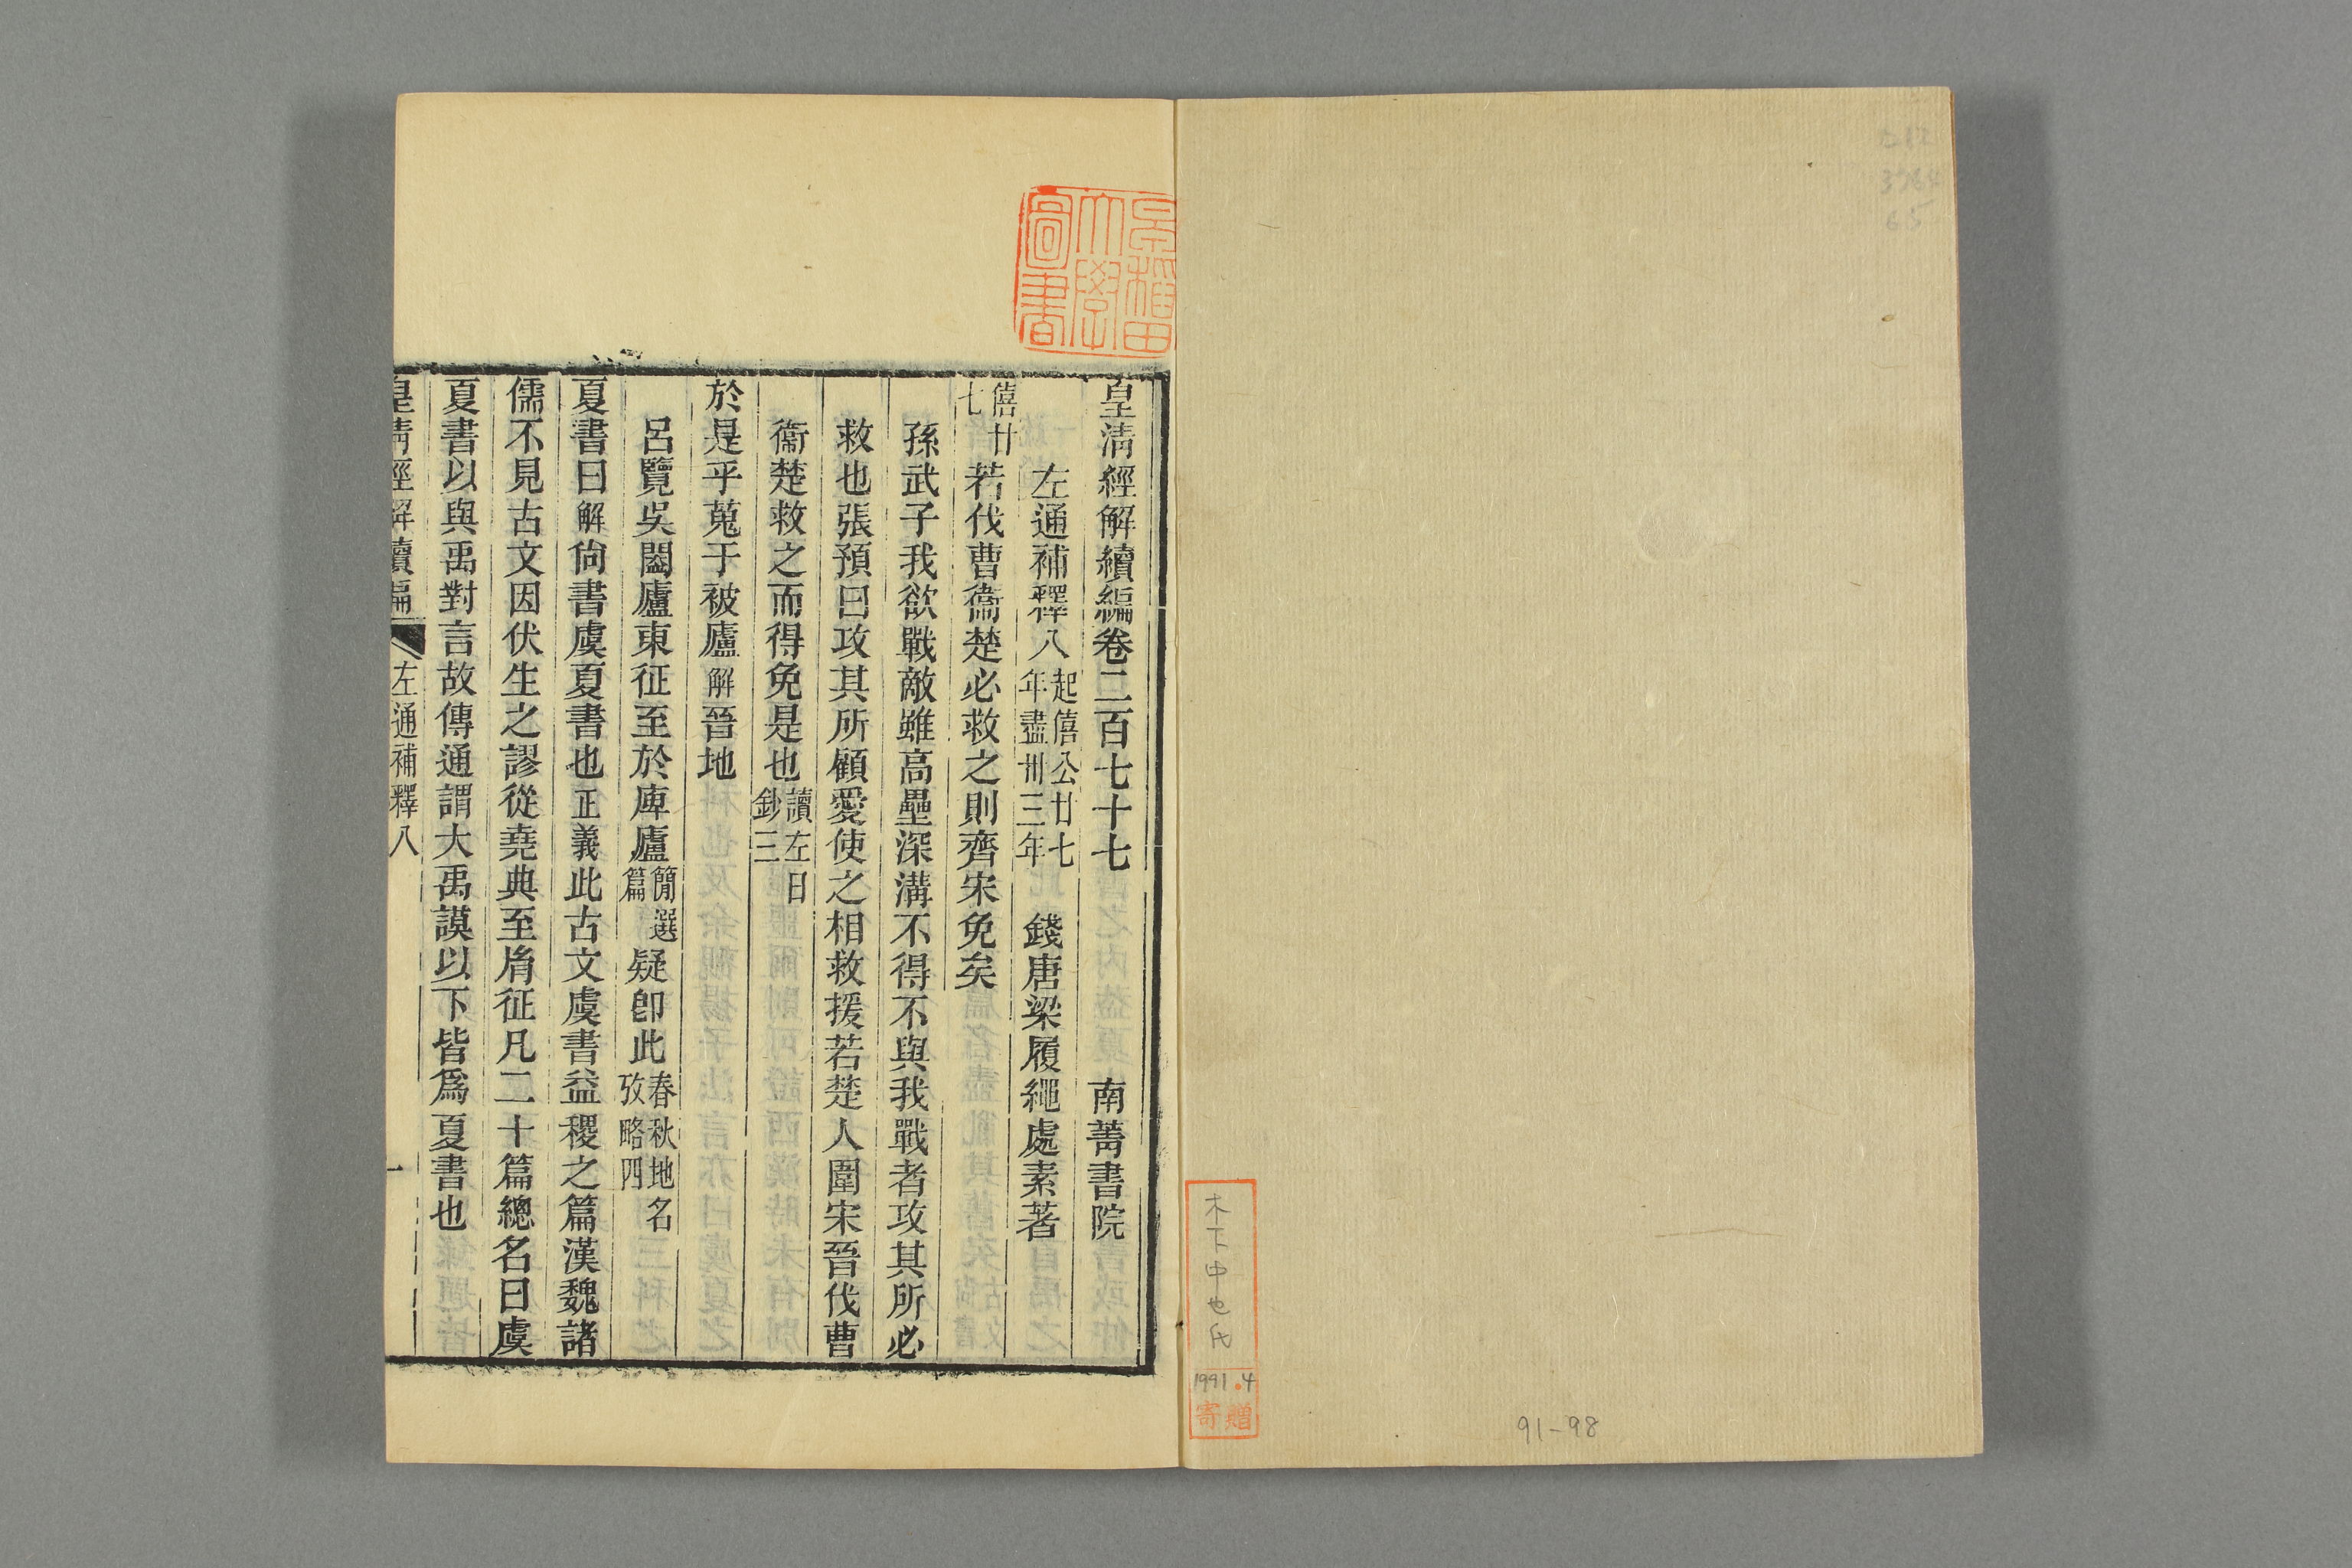 皇清經解續編卷二百七十七 南菁書院
左通補釋八起僖公廿七年盡卅三年 錢唐梁履繩處素著
僖廿七若伐曹衞楚必救之則齊宋免矣
孫武子我欲戰敵雖高壘深溝不得不與我戰者攻其所必
救也張預曰攻其所顧愛使之相救援若楚人圍宋晉伐曹
衞楚救之而得免是也讀左日鈔三
於是乎蒐于被廬解晉地
呂覽吳闔廬東征至於庳廬簡選篇疑卽此春秋地名攷略四
夏書曰解尙書虞夏書也正義此古文虞書益稷之篇漢魏諸
儒不見古文因伏生之謬從堯典至胤征凡二十篇總名曰虞
夏書以與禹對言故傳通謂大禹謨以下皆爲夏書也
皇清經解續編 左通補釋八 一
早稲田大學圖書
木下中也氏
1991.4
寄贈
91-98